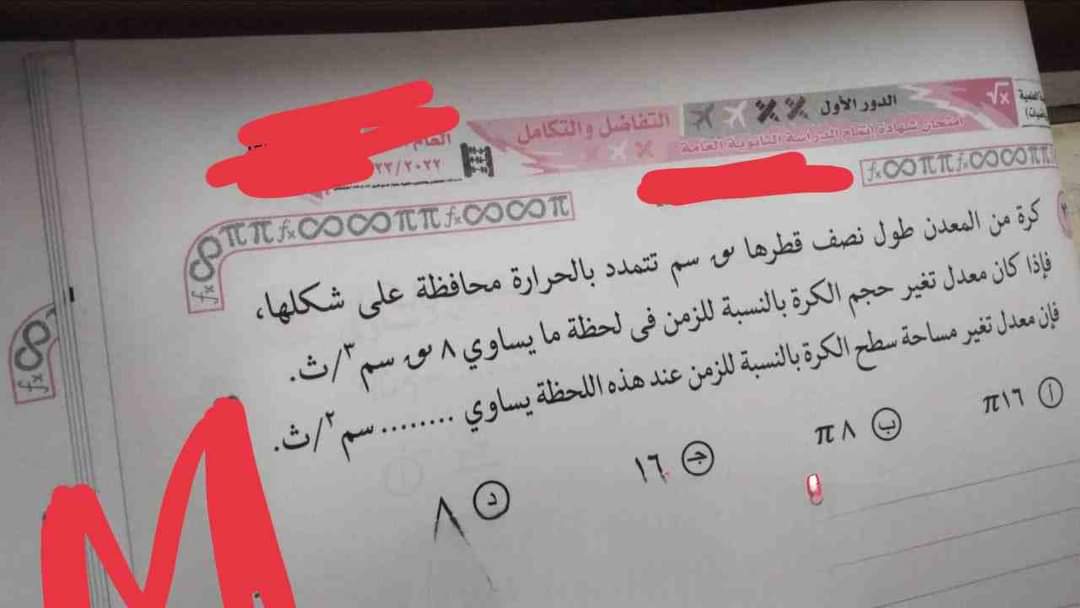 الدور الأول
التفاضل والتكامل
امتحان شهادة إتمام الدراسة الثانوية العامة
العام
٢٢/٢٠٢٢
fx∞∞ππfx∞∞ππ
fx∞ππfx∞∞ππfx∞∞π
كرة من المعدن طول نصف قطرها نق سم تتمدد بالحرارة محافظة على شكلها،
فإذا كان معدل تغير حجم الكرة بالنسبة للزمن فى لحظة ما يساوي ٨ نق سم٣/ث.
فإن معدل تغير مساحة سطح الكرة بالنسبة للزمن عند هذه اللحظة يساوي ........ سم٢/ث.
أ ١٦π
ب ٨π
جـ ١٦
د ٨
fx∞
M